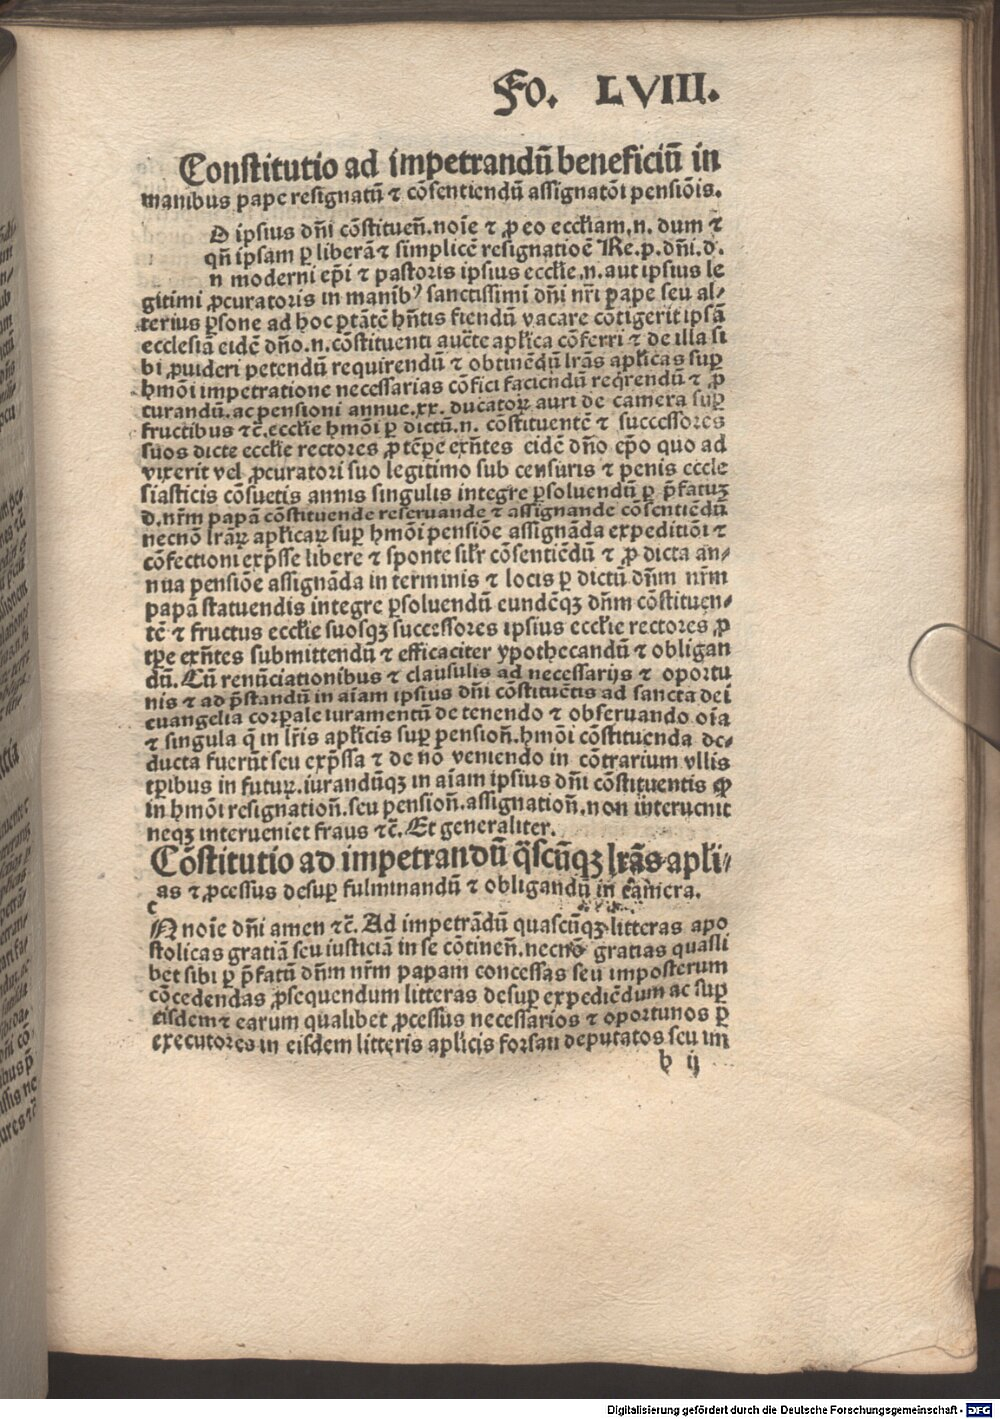 Fo. LVIII.
Constitutio ad impetrandū beneficiū in
manibus pape resignatū ⁊ cōsentiendū assignatōi pensiōis.
D ipsius dn̄i cōstituen̄. noīe ⁊ ꝓ eo ecclīam. n. dum ⁊
qn̄ ipsam ꝑ liberā ⁊ simplicē resignatioē Re. p. dn̄i. d.
n moderni ep̄i ⁊ pastoris ipsius ecclīe. n. aut ipsius le
gitimi ꝓcuratoris in manibꝰ sanctissimi dn̄i nr̄i pape seu al⸗
terius ꝑsone ad hoc ptātē hn̄tis fiendū vacare cōtigerit ipsā
ecclesiā eidē dn̄o. n. cōstituenti aucte apl̄ica cōferri ⁊ de illa si
bi ꝓuideri petendū requirendū ⁊ obtinēdū lr̄as apl̄icas suꝑ
hmōi impetratione necessarias cōfici faciendū reqrendū ⁊ ꝓ
curandū. ac pensioni annue. xx. ducatoꝝ auri de camera suꝑ
fructibus ⁊c̄. ecclīe hmōi ꝑ dictū. n. cōstituentē ⁊ successores
suos dicte ecclīe rectores ꝓ tēpe exn̄tes eidē dn̄o ep̄o quo ad
vixerit vel ꝓcuratori suo legitimo sub censuris ⁊ penis eccle
siasticis cōsuetis annis singulis integre ꝑsoluendū ꝑ p̄fatuꝫ
d. nr̄m papā cōstituende reseruande ⁊ assignande cōsentiēdū
necnō lr̄aꝝ apl̄icaꝝ suꝑ hmōi pensiōe assignāda expeditiōi ⁊
cōfectioni exp̄sse libere ⁊ sponte sil̄r cōsentiēdū ⁊ ꝓ dicta an⸗
nua pensiōe assignāda in terminis ⁊ locis ꝑ dictū dn̄m nr̄m
papā statuendis integre ꝑsoluendū eundēqꝫ dn̄m cōstituen⸗
tē ⁊ fructus ecclīe suosqꝫ successores ipsius ecclīe rectores ꝓ
tp̄e exn̄tes submittendū ⁊ efficaciter ypothecandū ⁊ obligan
dū. Cū renūciationibus ⁊ clausulis ad necessarijs ⁊ oportu
nis ⁊ ad p̄standū in aīam ipsius dn̄i cōstituētis ad sancta dei
euangelia corpale iuramentū de tenendo ⁊ obseruando oīa
⁊ singula q̄ in lr̄is apl̄icis suꝑ pension̄. hmōi cōstituenda de⸗
ducta fuerūt seu exp̄ssa ⁊ de nō veniendo in cōtrarium vllis
tꝑibus in futuꝝ. iurandūqꝫ in aīam ipsius dn̄i cōstituentis ꝙ
in hmōi resignation̄. seu pension̄. assignation̄. non interuenit
neqꝫ interueniet fraus ⁊c̄. Et generaliter.
Cōstitutio ad impetrandū q̄scūqꝫ lr̄as apl̄i⸗
as ⁊ ꝓcessus desuꝑ fulminandū ⁊ obligandū in camera.
c
N noīe dn̄i amen ⁊c̄. Ad impetrādū quascūqꝫ litteras apo
stolicas gratiā seu iusticiā in se cōtinen̄. necnō gratias quasli
bet sibi ꝑ p̄fatū dn̄m nr̄m papam concessas seu imposterum
cōcedendas ꝓsequendum litteras desuꝑ expediēdum ac suꝑ
eisdem ⁊ earum qualibet ꝓcessus necessarios ⁊ oportunos ꝑ
executores in eisdem litteris apl̄icis forsan deputatos seu im
h ij
Digitalisierung gefördert durch die Deutsche Forschungsgemeinschaft - DFG